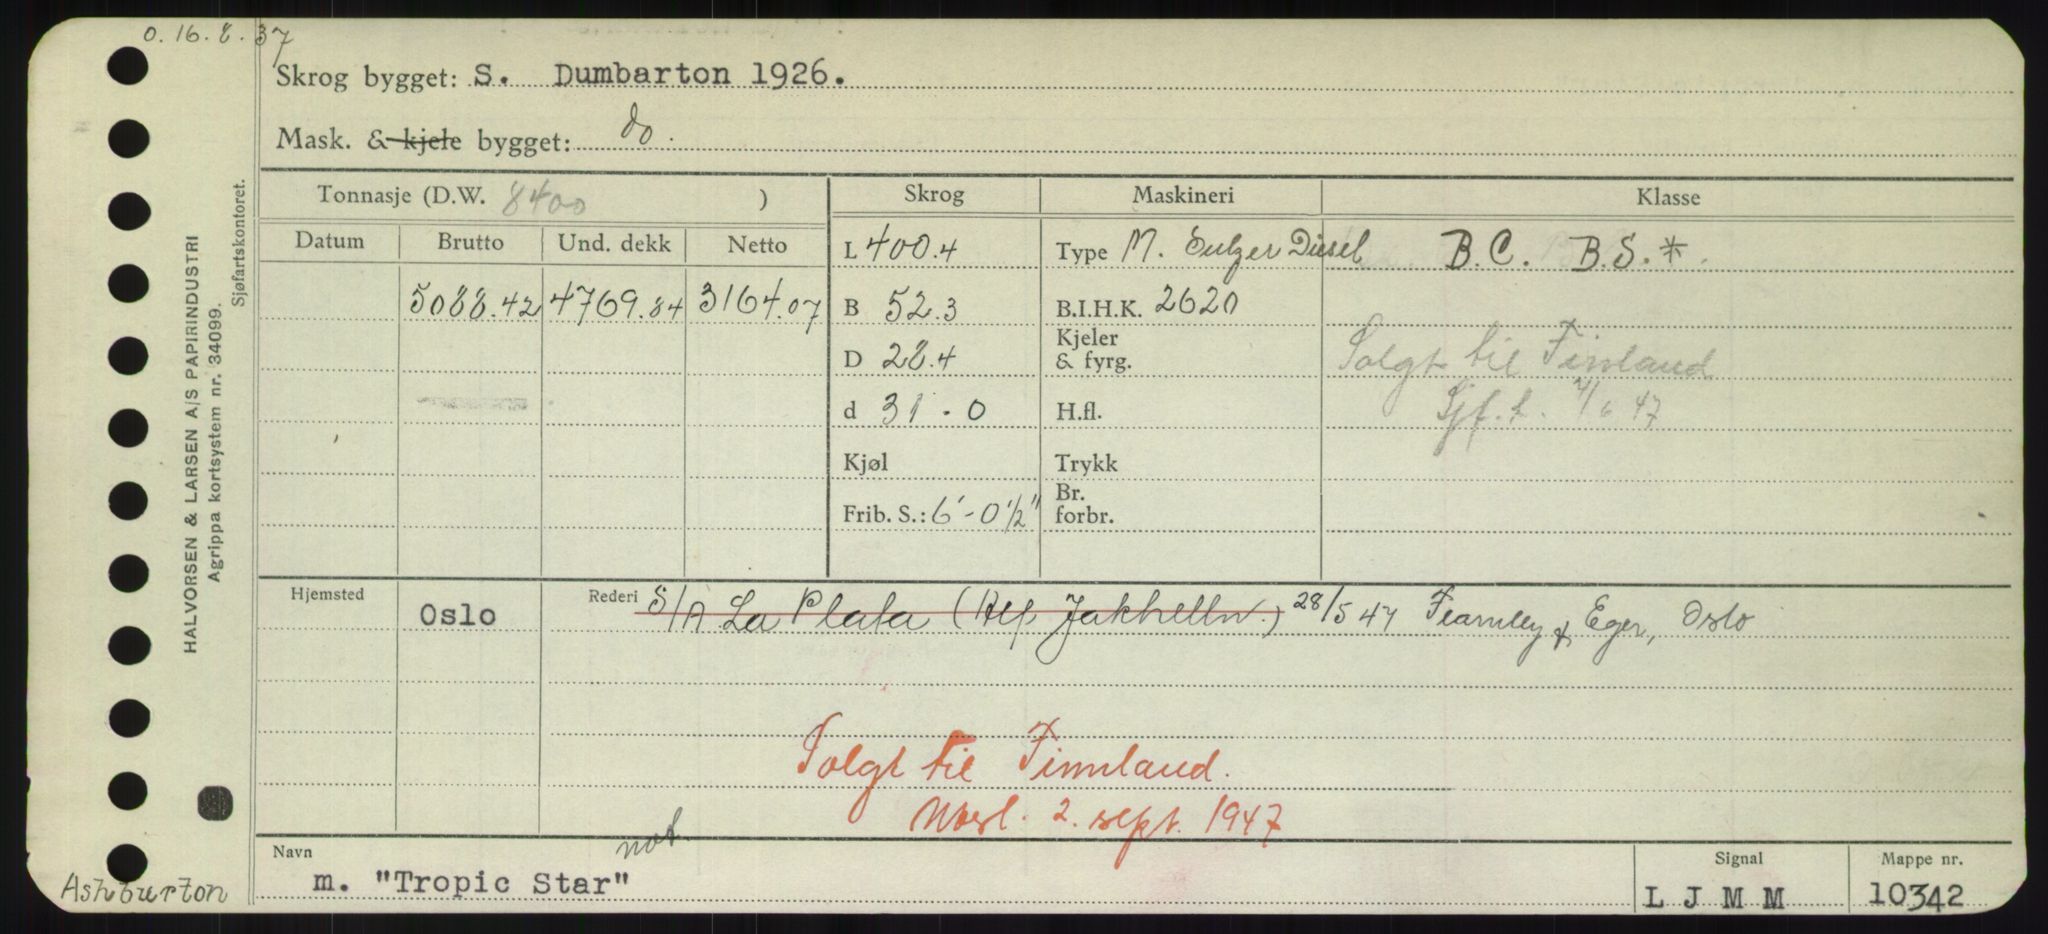 O. 16.8.37
Skrog bygget: S. Dumbarton 1926.
Mask. & kjele bygget: do.
Tonnasje (D.W. 8400 )
Skrog
Maskineri
Klasse
Datum Brutto Und. dekk Netto
L 400.4
Type M. Sulzer Diesel
B.C. B.S.*
5088.42 4769.84 3164.07
B 52.3
B.I.H.K. 2620
D 28.4
Kjeler
& fyrg.
Solgt til Finnland
d 31 - 0
H.fl.
Sjf.t. 47
Kjøl
Trykk
Frib. S.: 6'-0 1/2"
Br.
forbr.
Hjemsted
Oslo
Rederi S/A La Plata (Alf Jakhelln.) 28/5 47 Fearnley & Eger, Oslo
Solgt til Finnland.
2. sept. 1947
not
Navn
m. "Tropic Star"
Signal
L J M M
Mappe nr.
10342
Ashburton
HALVORSEN & LARSEN A/S PAPIRINDUSTRI
Agrippa kortsystem nr. 34099.
Sjøfartskontoret.